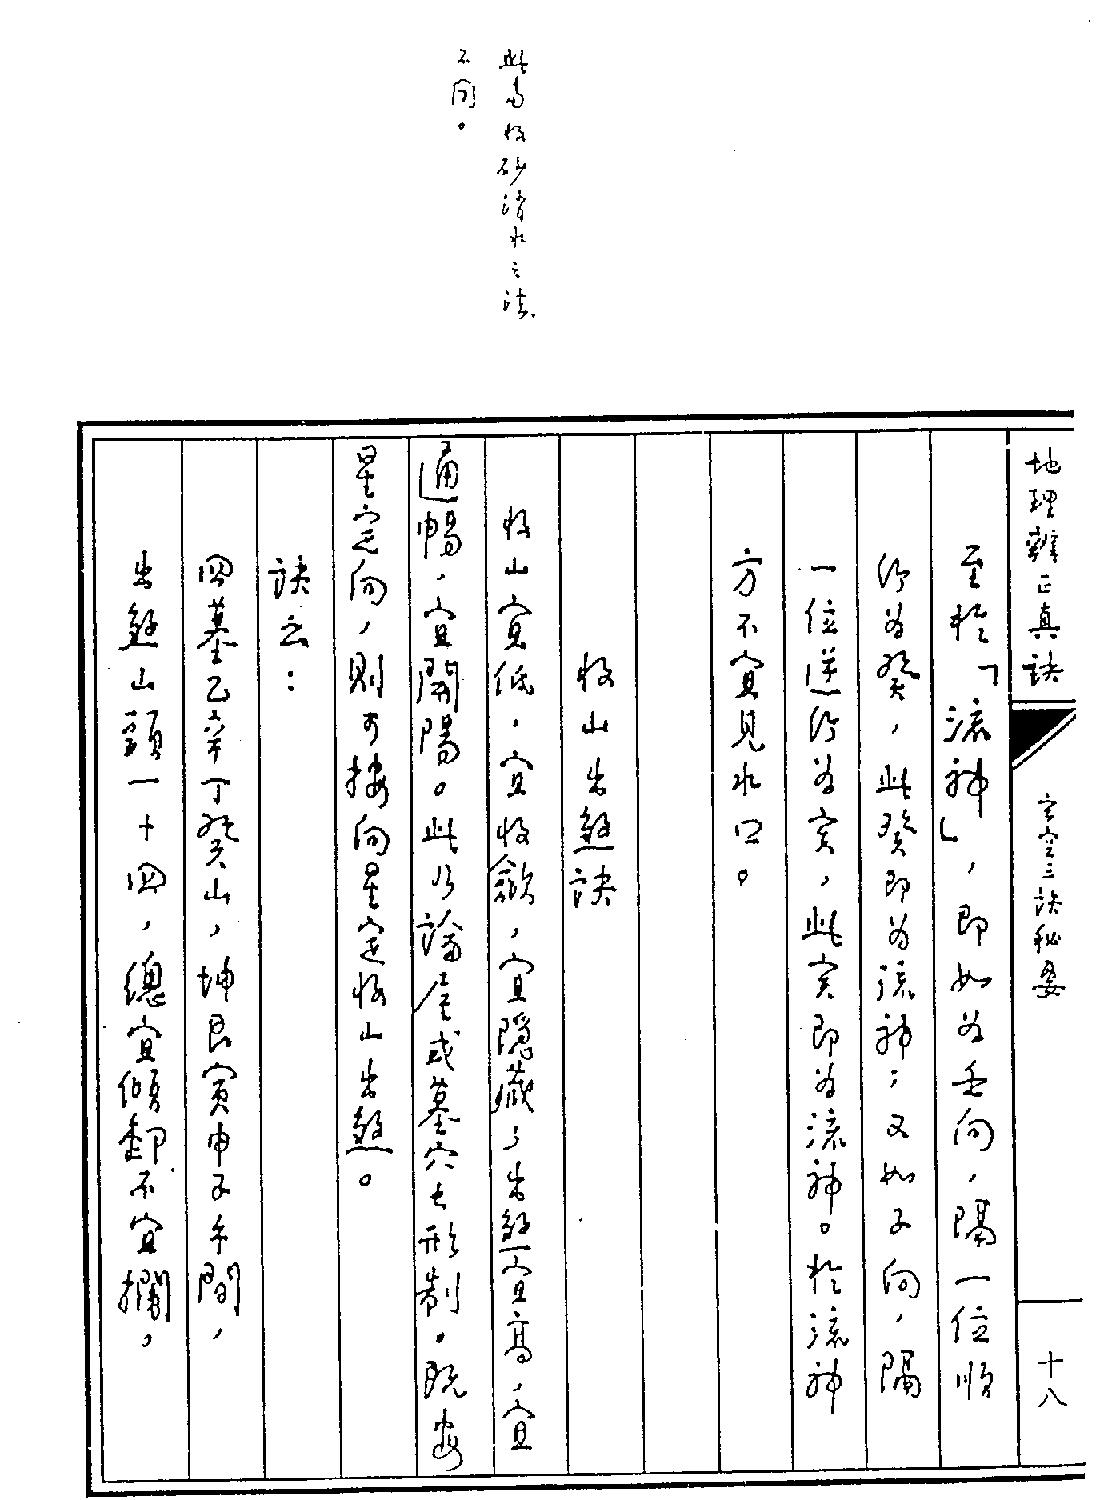 地理辨正真訣
玄空三訣秘要
十八
至於「流神」，即如為壬向，隔一位順
行為癸，此癸即為流神；又如子向，隔
一位逆行為亥，此亥即為流神。於流神
方不宜見水口。
收山出煞訣
收山宜低，宜收斂，宜隱藏；出煞宜高，宜
通暢，宜開陽。此乃論屋或墓穴之形制。既按
星定向，則可按向星定收山出煞。
訣云：
四墓乙辛丁癸山，坤艮寅申子午間，
出煞山頭一十四，總宜傾卸不宜攔，
此與收砂消水之法
不同。